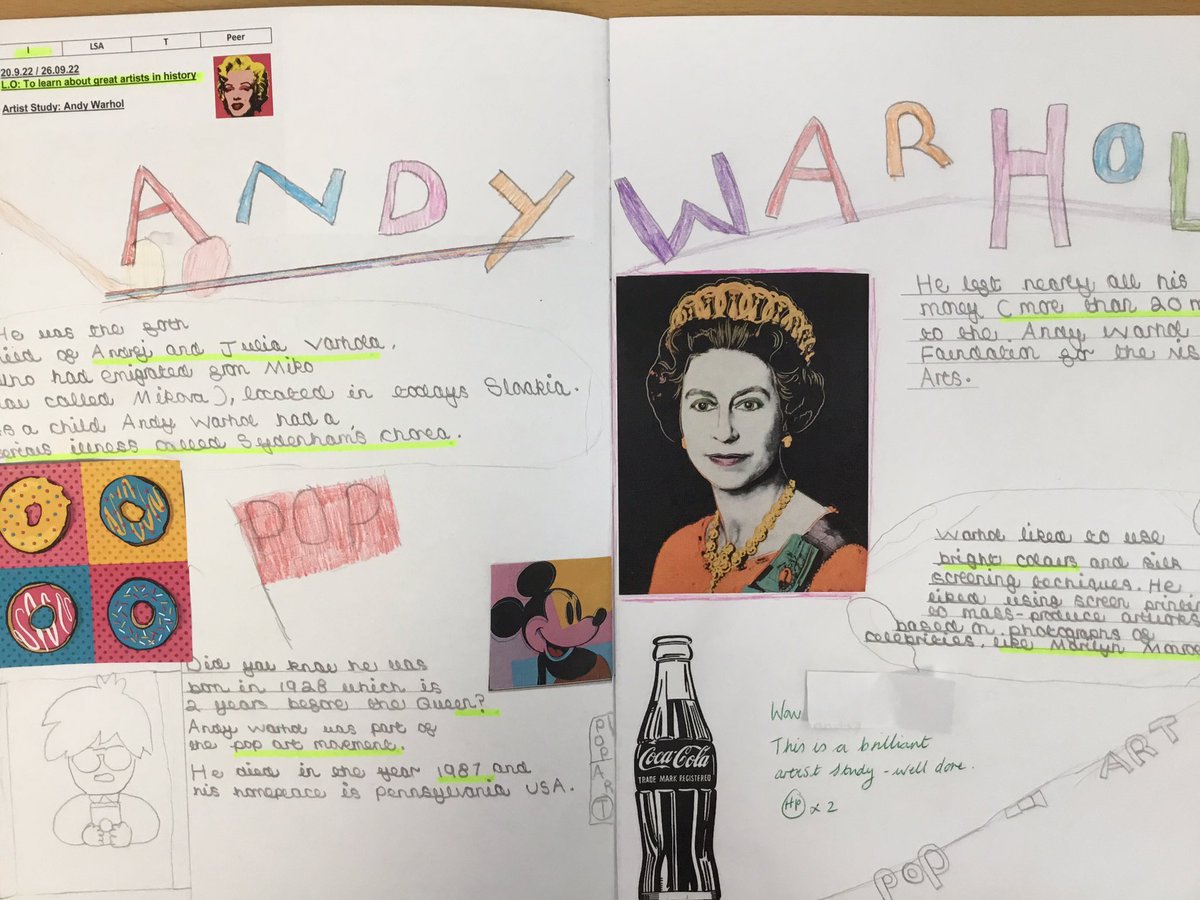 I LSA T Peer
20.9.22 / 26.09.22
L.O: To learn about great artists in history
Artist Study: Andy Warhol
ANDY
WARHOL
He was the
of Andrej and Julia Varhola,
who had emigrated from Miko
called Mikova), located in todays Slovakia.
as a child Andy Warhol had a
serious illness called Sydenham's chorea.
POP
Did you know he was
born in 1928 which is
2 years before the Queen?
Andy Warhol was part of
the pop art movement.
He died in the year 1987 and
his homepeace is Pennsylvania USA.
POP ART
He left nearly all his
money ( more than 20 m
to the Andy Warhol
Foundation for the vis
Arts.
Warhol liked to use
bright colours and silk
screening techniques. He
liked using screen printing
to mass-produce artworks
based on photographs of
celebrities, like Marilyn Monroe
Coca-Cola
TRADE MARK REGISTERED
Wow
This is a brilliant
artist study - well done.
HP x 2
POP ART